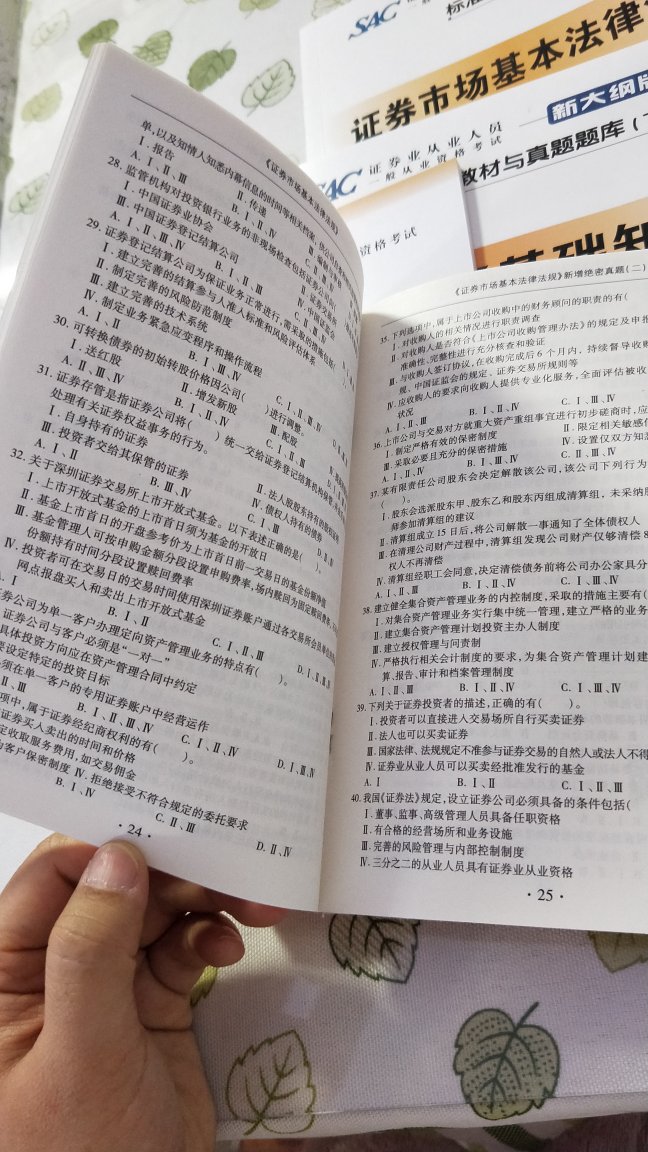 SAC
标准
证券市场基本法律
新大纲版
SAC 证券业从业人员
一般从业资格考试
教材与真题题库(
资格考试
基础知
《证券市场基本法律法规》
单,以及知情人知悉内幕信息的时间等相关档案,
Ⅰ. 报告
Ⅱ. 传递
A. Ⅰ、Ⅱ、Ⅲ
B. Ⅰ、Ⅱ、Ⅳ
28. 监管机构对投资银行业务的非现场检查包括
Ⅰ. 中国证券业协会
Ⅲ. 中国证券登记结算公司
A. Ⅰ、Ⅱ、Ⅲ、Ⅳ
B. Ⅰ、Ⅱ、Ⅲ
29. 证券登记结算公司为保证业务正常进行,需采取的措施包括(
Ⅰ. 建立完善的结算参与人准入标准和风险评估体系
Ⅱ. 制定完善的风险防范制度
Ⅲ. 建立完善的技术系统
Ⅳ. 制定业务紧急应变程序和操作流程
A. Ⅰ、Ⅱ
B. Ⅰ、Ⅲ、Ⅳ
C. Ⅰ、Ⅱ、Ⅲ、Ⅳ
30. 可转换债券的初始转股价格因公司( )进行调整。
Ⅰ. 送红股
Ⅱ. 增发新股
Ⅲ. 配股
A. Ⅱ、Ⅲ、Ⅳ
B. Ⅰ、Ⅱ、Ⅳ
C. Ⅰ、Ⅱ、Ⅲ
31. 证券存管是指证券公司将( )统一交给证券登记结算机构保管,
处理有关证券权益事务的行为。
Ⅰ. 自身持有的证券
Ⅱ. 法人股股东持有的
Ⅲ. 投资者交给其保管的证券
Ⅳ. 债权人持有的债券
A. Ⅰ、Ⅱ
B. Ⅲ、Ⅳ
C. Ⅰ、Ⅲ
D. Ⅱ、Ⅳ
32. 关于深圳证券交易所上市开放式基金。以下表述正确的是( )。
Ⅰ. 上市开放式基金的上市首日须为基金的开放日
Ⅱ. 基金上市首日的开盘参考价为上市首日前一交易日的基金份额净值
Ⅲ. 基金管理人可按申购金额分段设置申购费率,场内赎回为固定赎回费率,
份额持有时间分段设置赎回费率
Ⅳ. 投资者可在交易日的交易时间使用深圳证券账户通过各交易所会员单位
网点报盘买入和卖出上市开放式基金
Ⅰ
B. Ⅰ、Ⅱ
C. Ⅰ、Ⅱ、Ⅲ
D. Ⅰ、Ⅱ、Ⅲ、Ⅳ
券公司为单一客户办理定向资产管理业务的特点有( )。
证券公司与客户必须是“一对一”
具体投资方向应在资产管理合同中约定
要设定特定的投资目标
须在单一客户的专用证券账户中经营运作
Ⅱ、Ⅲ
B. Ⅰ、Ⅱ、Ⅲ、Ⅳ
C. Ⅰ、Ⅱ、Ⅳ
D. Ⅰ、Ⅲ、Ⅳ
项中,属于证券经纪商权利的有( )。
证券买入卖出的时间和价格
定收取服务费用,如交易佣金
为客户保密制度 Ⅳ. 拒绝接受不符合规定的委托要求
B. Ⅰ、Ⅳ
C. Ⅱ、Ⅲ
D. Ⅱ、Ⅳ
· 24 ·
《证券市场基本法律法规》新增绝密真题(二)
35. 下列选项中,属于上市公司收购中的财务顾问的职责的有(
Ⅰ. 对收购人的相关情况进行职责调查
Ⅱ. 对收购人是否符合《上市公司收购管理办法》的规定及申报
准确性、完整性进行充分核查和验证
Ⅲ. 与收购人签订协议,在收购完成后 6 个月内,持续督导收购
规、中国证监会的规定、证券交易所规则等
Ⅳ. 应收购人的要求向收购人提供专业化服务,全面评估被收
状况
A. Ⅰ、Ⅱ、Ⅲ
B. Ⅰ、Ⅱ、Ⅳ
C. Ⅰ、Ⅲ、Ⅳ
36. 上市公司与交易对方就重大资产重组事宜进行初步磋商时,应
Ⅰ. 制定严格有效的保密制度
Ⅱ. 限定相关敏感信
Ⅲ. 采取必要且充分的保密措施
Ⅳ. 设置仅双方知
A. Ⅰ、Ⅱ、Ⅳ
B. Ⅰ、Ⅲ、Ⅳ
C. Ⅱ、Ⅲ、Ⅳ
37. 某有限责任公司股东会决定解散该公司,该公司下列行为
( )。
Ⅰ. 股东会选派股东甲、股东乙和股东丙组成清算组,未采纳
师参加清算组的建议
Ⅱ. 清算组成立 15 日后,将公司解散一事通知了全体债权人
Ⅲ. 在清理公司财产过程中,清算组发现公司财产仅够清偿 8
权人不再清偿
Ⅳ. 清算组经职工会同意,决定清偿债务前将公司办公家具分
A. Ⅰ、Ⅱ、Ⅲ
B. Ⅰ、Ⅱ、Ⅳ
C. Ⅰ、Ⅲ、Ⅳ
38. 建立健全集合资产管理业务的内控制度,采取的措施主要有(
Ⅰ. 对集合资产管理业务实行集中统一管理,建立严格的业务
Ⅱ. 建立集合资产管理计划投资主办人制度
Ⅲ. 建立授权管理与问责制
Ⅳ. 严格执行相关会计制度的要求,为集合资产管理计划建
算、报告、审计和档案管理制度
A. Ⅰ、Ⅱ、Ⅲ
B. Ⅰ、Ⅱ、Ⅳ
C. Ⅰ、Ⅲ、Ⅳ
39. 下列关于证券投资者的描述,正确的有( )。
Ⅰ. 投资者可以直接进入交易场所自行买卖证券
Ⅱ. 法人也可以买卖证券
Ⅲ. 国家法律、法规规定不准参与证券交易的自然人或法人不得
Ⅳ. 证券业从业人员可以买卖经批准发行的基金
A. Ⅰ
B. Ⅰ、Ⅱ
C. Ⅰ、Ⅱ、Ⅲ
40. 我国《证券法》规定,设立证券公司必须具备的条件包括(
Ⅰ. 董事、监事、高级管理人员具备任职资格
Ⅱ. 有合格的经营场所和业务设施
Ⅲ. 完善的风险管理与内部控制制度
Ⅳ. 三分之二的从业人员具有证券业从业资格
· 25 ·